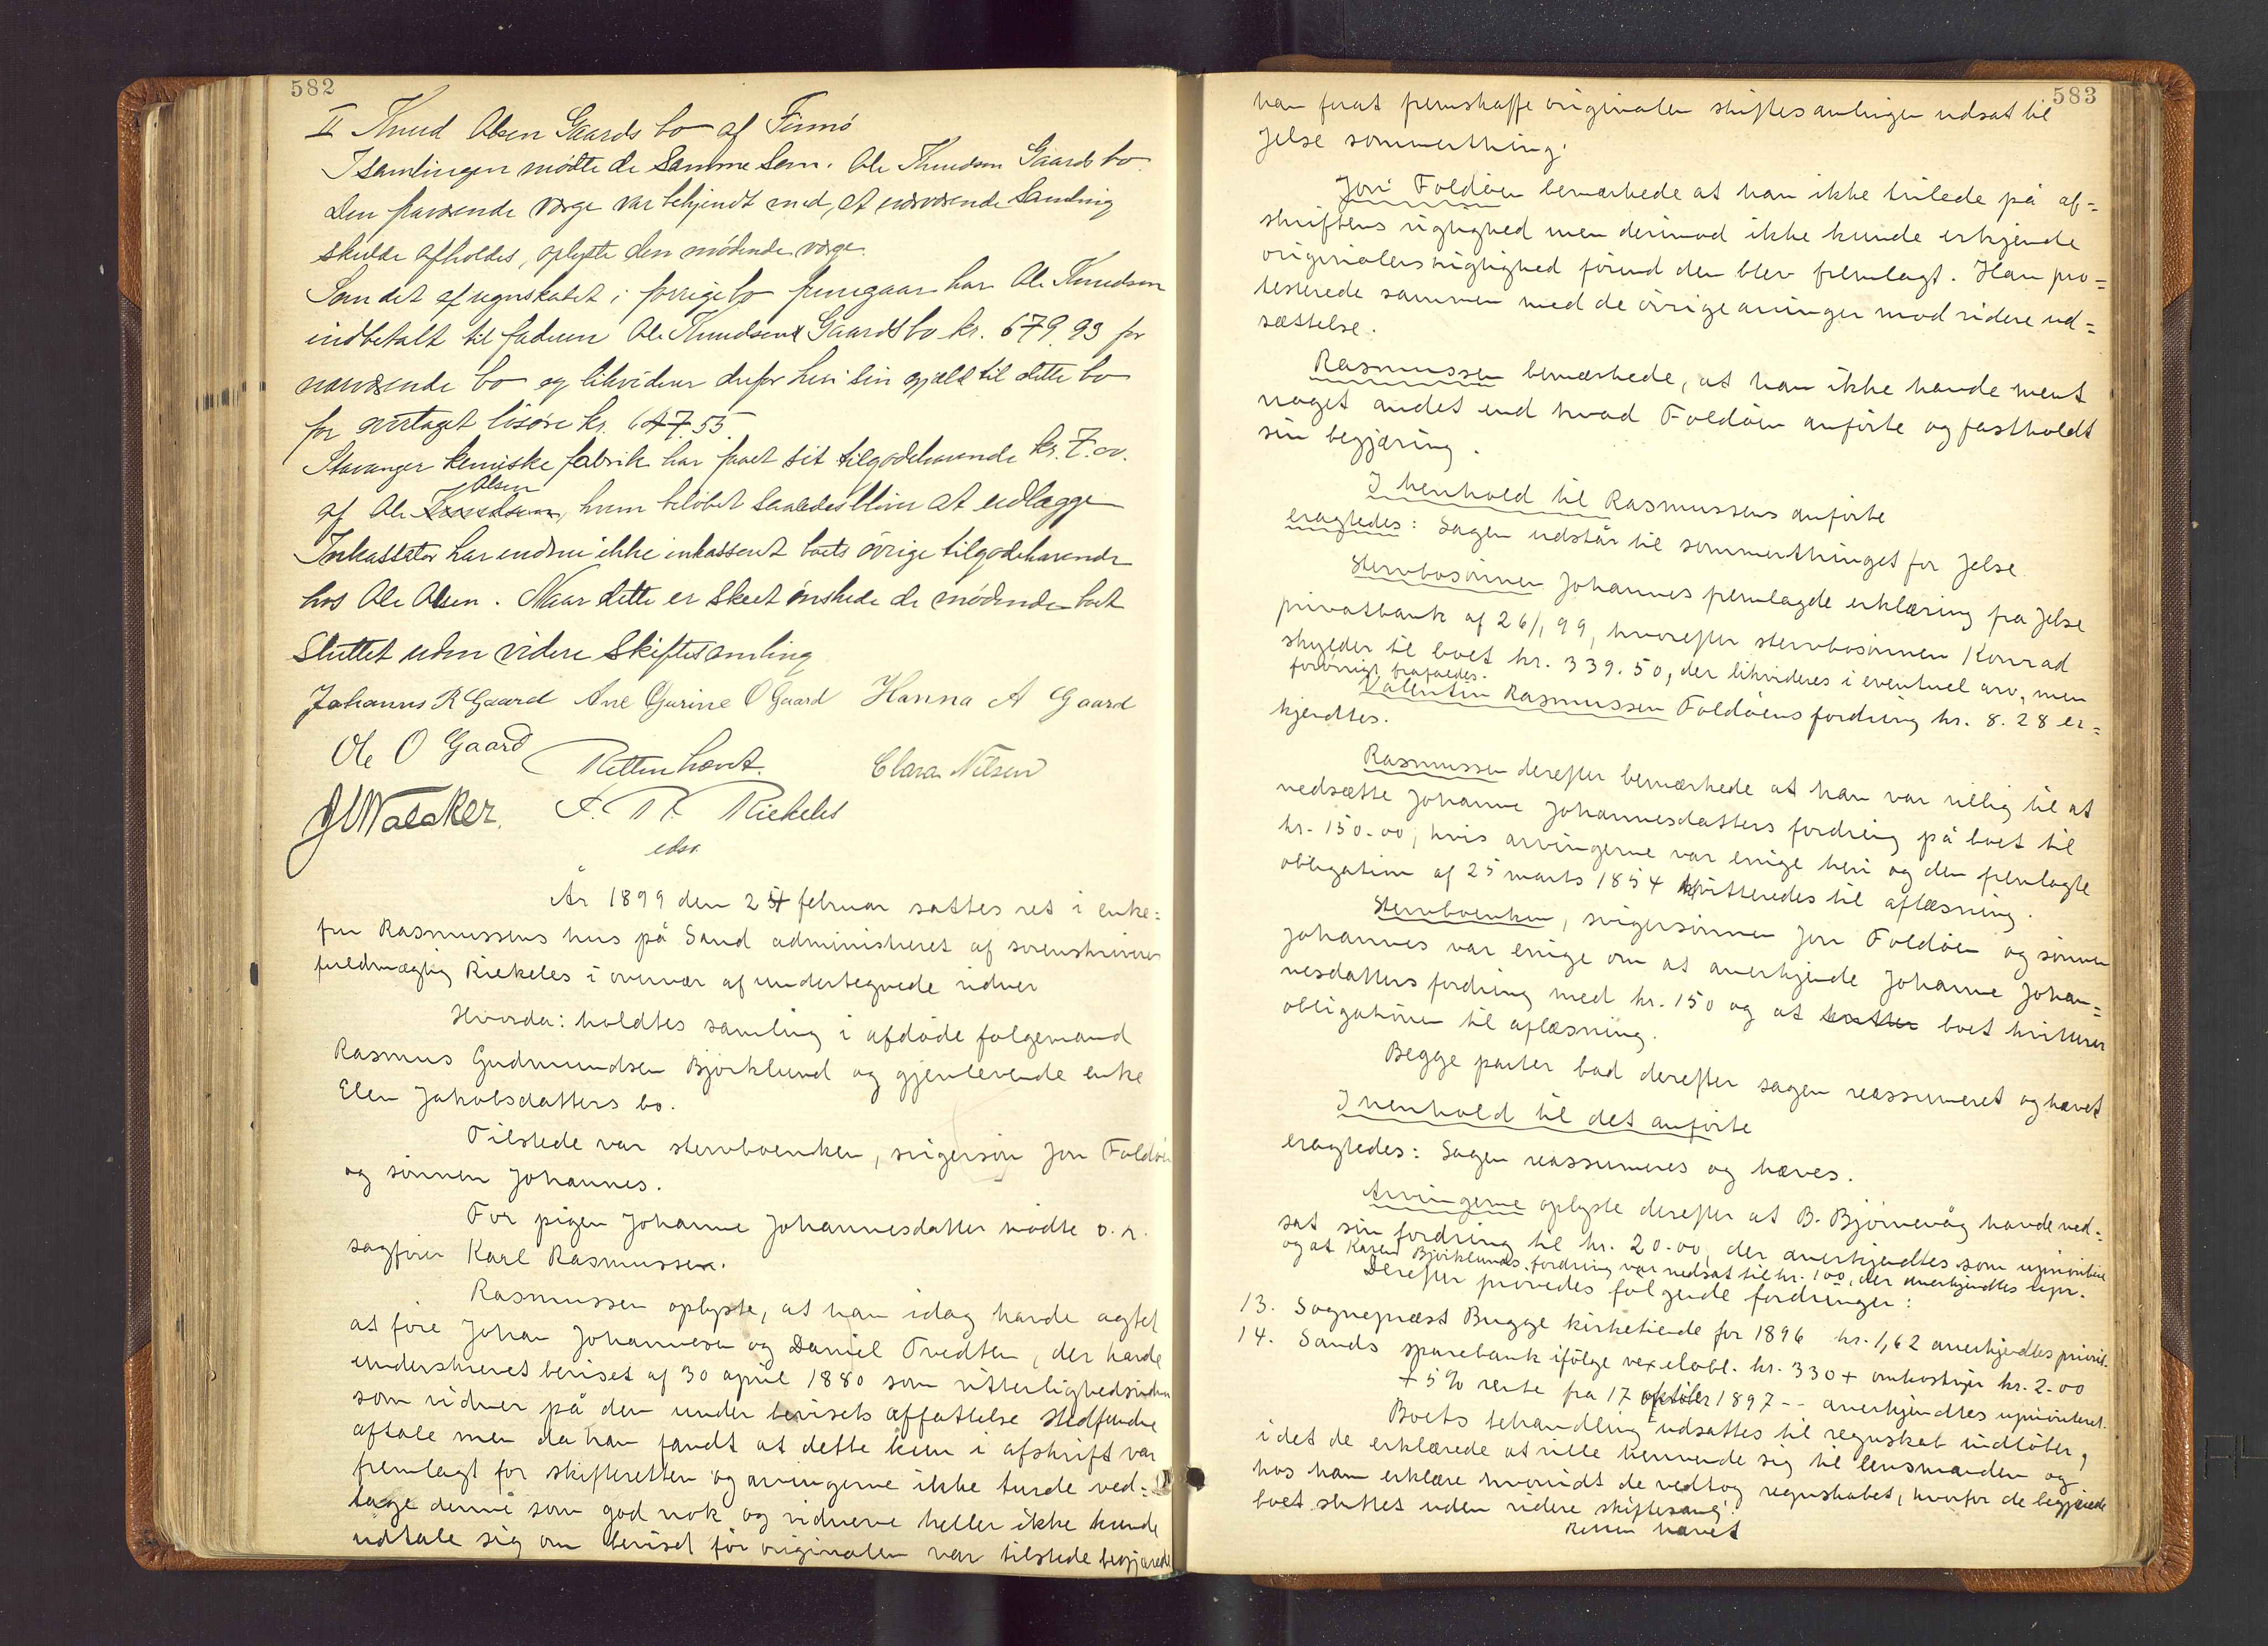 582
II Knud Olsen Gaards bo af Finnø
I samlingen mødte de samme som i Ole Knudsen Gaards bo
Den fraværende værge var bekjendt med, at nærværende samling
skulde afholdes, oplyste den mødende værge.
Som det af regnskabet i forrige bo fremgaar har Ole Knudsen
indbetalt til faderen Ole Knudsens Gaards bo kr. 679.93 for
nærværende bo og likviderer derfor heri sin gjæld til dette bo
for overtaget løsøre kr. 647.55.
Stavanger kemiske fabrik har faaet sit tilgodehavende kr. 7.00.
af Ole Olsen, hvem beløbet saaledes bliver at udlægge
Inkassator har endnu ikke inkasseret boets øvrige tilgodehavende
hos Ole Olsen. Naar dette er skeet ønskede de mødende boet
sluttet uden videre skiftesamling
Johannes R Gaard Ane Gurine O Gaard Hanna A Gaard
Ole O Gaard Retten hævet. Clara Nilsen
Riekeles
edsv.
År 1899 den 25 februar sattes ret i enke=
fru Rasmussens hus på Sand administreret af sorenskriver
fuldmægtig Riekeles i overvær af undertegnede vidner
Hvorda: holdtes samling i afdøde følgemand
Rasmus Gudmundsen Bjørklund og gjenlevende enke
Elen Jakobsdatters bo.
Tilstede var stervboenken, svigersøn Jon Foldøen
og sønnen Johannes.
For pigen Johanne Johannesdatter mødte o.r.
sagfører Karl Rasmussen.
Rasmussen oplyste, at han idag havde agtet
at føre Johan Johannesen og Daniel Tvedten, der havde
underskrevet beviset af 30 april 1880 som vitterlighedsvidner
som vidner på den under bevisets affattelse stedfundne
aftale men da han fandt at dette kun i afskrift var
fremlagt for skifteretten og arvingerne ikke turde ved=
tage denne som god nok og vidnerne heller ikke kunde
udtale sig om beviset før originalen var tilstede begjærede
583
han forat fremskaffe originalen skiftesamlingen udsat til
Jelse sommerthing.
Jon Foldøen bemærkede at han ikke tvilede på af=
skriftens rigtighed men derimod ikke kunde erkjende
originalens rigtighed førend den blev fremlagt. Han pro=
testerede sammen med de øvrige arvinger mod videre ud=
sættelse.
Rasmussen bemærkede, at han ikke havde ment
noget andet end hvad Foldøen anførte og fastholdt
sin begjæring.
I henhold til Rasmussens anførte
eragtedes: Sagen udstår til sommerthinget for Jelse
Stervbosønnen Johannes fremlagde erklæring fra Jelse
privatbank af 26/1 99, hvorefter stervbosønnen Konrad
skylder til boet kr. 339.50, der likvideres i eventuel arv, men
forøvrigt frafaldes.
Valentin Rasmussen Foldøens fordring kr. 8.28 er=
kjendtes.
Rasmussen derefter bemærkede at han var villig til at
nedsætte Johanne Johannesdatters fordring på boet til
kr. 150.00, hvis arvingerne var enige heri og den fremlagte
obligation af 25 marts 1854 kvitteredes til aflæsning.
Stervboenken, svigersønnen Jon Foldøen og sønnen
Johannes var enige om at anerkjende Johanne Johan=
nesdatters fordring med kr. 150 og at boet kvitterer
obligationen til aflæsning.
Begge parter bad derefter sagen reassumeret og hævet
I henhold til det anførte
eragtedes: Sagen reassumeres og hæves.
Arvingerne oplyste derefter at B. Bjørnevåg havde ned=
sat sin fordring til kr. 20.00, der anerkjendtes som uprioriteret
og at Karen Bjørklunds fordring var nedsat til kr. 100, der anerkjendtes upr.
Derefter prøvedes følgende fordringer:
13. Sognepræst Bugge kirketiende for 1896 kr. 1,62 anerkjendtes priorit.
14. Sands sparebank ifølge vexelobl. kr. 330 + omkostninger kr. 2.00
+ 5% rente fra 17 oktober 1897 -- anerkjendtes uprioriteret.
Boets behandling udsattes til regnskab indløber,
idet de erklærede at ville henvende sig til lensmanden og
hos ham erklære hvorvidt de vedtog regnskabet, hvorfor de begjærede
boet sluttet uden videre skiftesaml.
Retten hævet